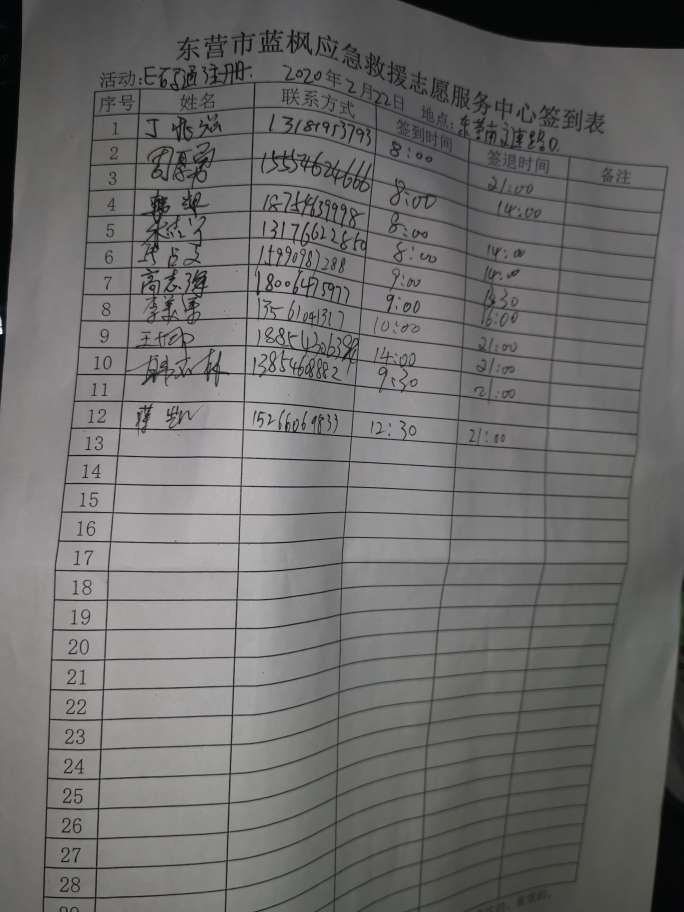 东营市蓝枫应急救援志愿服务中心签到表
活动:E码通注册. 2020年2月22日 地点:东营
序号 姓名 联系方式 签到时间 签退时间 备注
1 丁兆 13181953793 8:00 21:00
2 周 15554624666 8:00 14:00
3
4 18754639998 8:00 14:00
5 13176622860 8:00 14:00
6 占文 15990981288 9:00 14:30
7 高志强 18006475977 9:00 16:00
8 李美 13561041317 10:00 21:00
9 王 14:00 21:00
10 林 13854608882 9:30 21:00
11
12 薛凯 15266069833 12:30 21:00
13
14
15
16
17
18
19
20
21
22
23
24
25
26
27
28
29